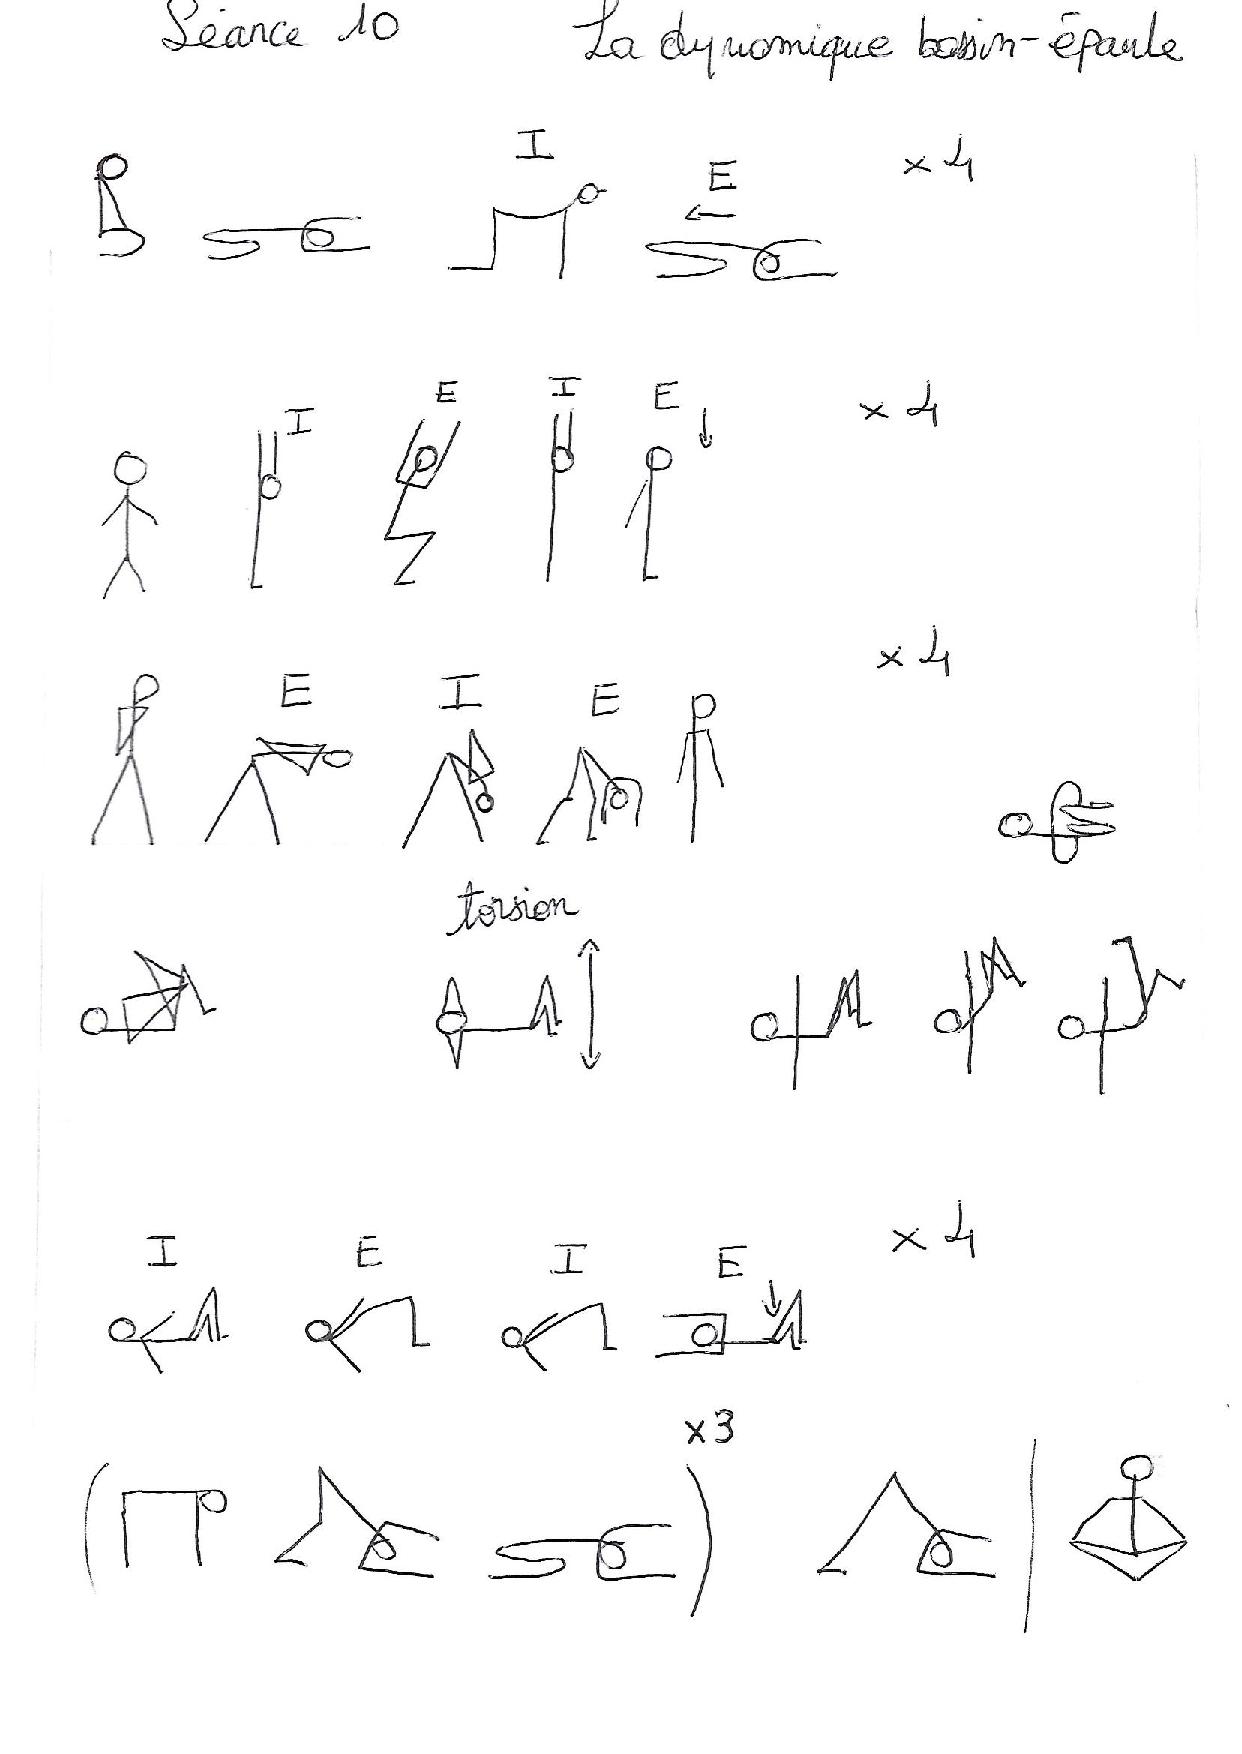 Séance 10 La dynamique bassin-épaule
I E x 4
I E I E x 4
E I E x 4
torsion
I E I E x 4
( ) x3